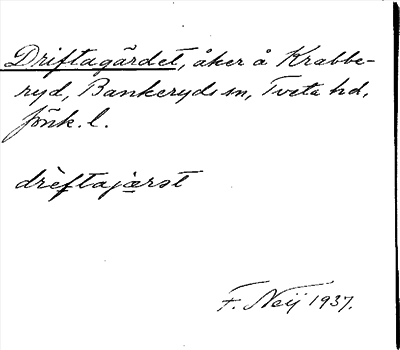 Driftagärdet, åker å Krabbe-
ryd, Bankeryds sn, Tveta hd,
Jönk. l.
drèftajærət
F. Neij 1937.